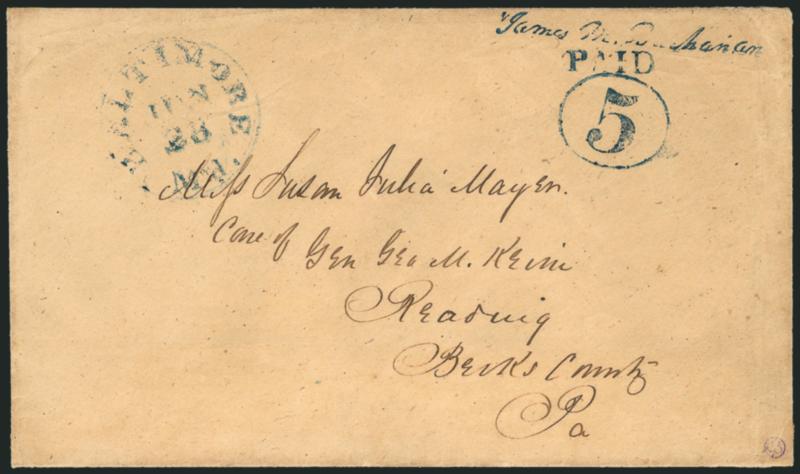 James M. Buchanan
PAID
5
BALTIMORE Md.
JUN
28
Miss Susan Julia Mayer.
Care of Gen Geo M. Keim
Reading
Berks County
Pa